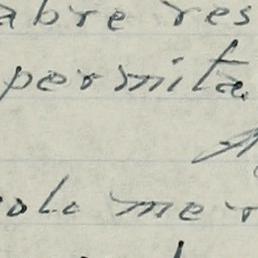 abre res
permita
solo mer